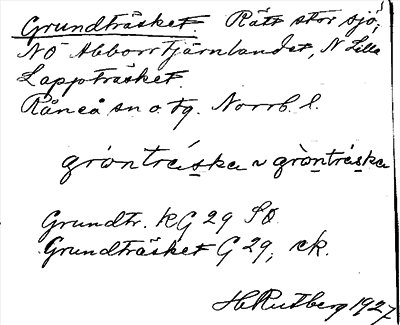 Grundträsket. Rätt stor sjö,
NÖ Abborrtjärnlandet, N Lilla
Lappträsket.
Råneå sn o. tg. Norrb. l.
gròntráska ~ gròntráska
Grundtr. KG 29 SO
Grundträsket G 29, ek.
HRutberg 1927